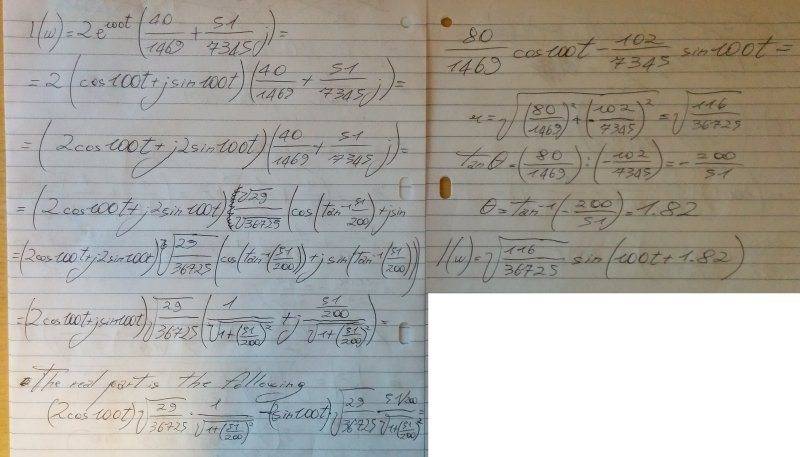 I(w) = 2e^{100t} (40/1469 + 51/7345 j) =
= 2 (cos100t + jsin100t) (40/1469 + 51/7345 j) =
= (2cos100t + j2sin100t) (40/1469 + 51/7345 j) =
= (2cos100t + j2sin100t) √29/√36725 (cos(tan⁻¹ 51/200) + jsin
= (2cos100t + j2sin100t) √(29/36725) (cos(tan⁻¹(51/200)) + jsin(tan⁻¹(51/200)))
= (2cos100t + jsin100t) √(29/36725) (1/√(1+(51/200)²) + j (51/200)/√(1+(51/200)²)) =
The real part is the following
(2cos100t) √(29/36725) · 1/√(1+(51/200)²) - (sin100t) √(29/36725) (51/200)/√(1+(51/200)²) =
80/1469 cos100t - 102/7345 sin100t =
r = √((80/1469)² + (-102/7345)²) = √(116/36725)
tanθ = (80/1469) : (-102/7345) = -200/51
θ = tan⁻¹(-200/51) = 1.82
I(w) = √(116/36725) sin(100t + 1.82)